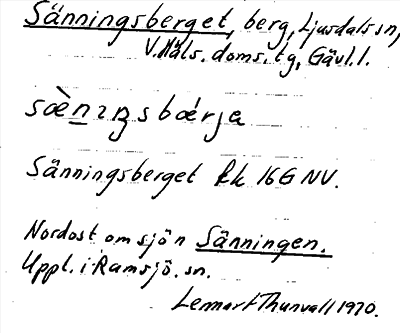 Sänningsberget, berg, Ljusdals sn,
V. Häls. doms. tg, Gävl. l.
sæ̀nıŋsbærja
Sänningsberget Rk 16G NV.
Nordost om sjön Sänningen.
Uppl. i Ramsjö. sn.
Lennart Thunvall 1970.